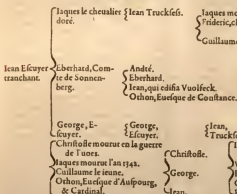 Iaques le cheualier
doré.
Iean Truckses.
Iaques mo
Frideric, ch
Guillaume
Iean Escuyer
tranchant.
Eberhard, Com-
te de Sonnen-
berg.
André.
Eberhard.
Iean, qui edifia Vuolfeck
Othon, Euesque de Constance.
George, E-
scuyer.
George,
Escuyer.
Iean,
Truckse
Christofle mourut en la guerre
de Tunes.
Iaques mourut l'an 1542.
Guillaume le ieune.
Othon, Euesque d'Auspourg,
& Cardinal.
Christofle.
George.
Iean.